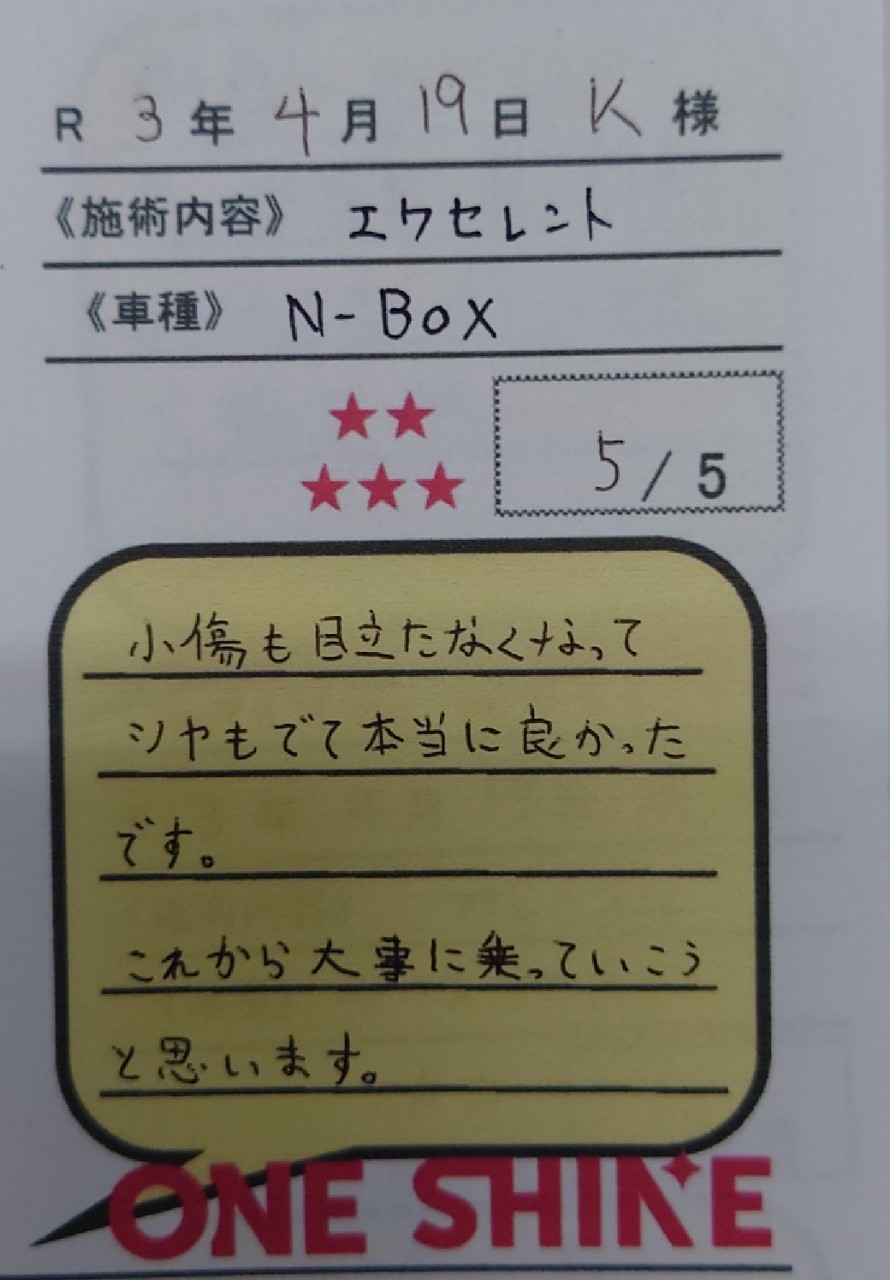 R 3年 4月 19日 K 様
《施術内容》 エクセレント
《車種》 N-BOX
5/5
小傷も目立たなくなって
ツヤもでて本当に良かった
です。
これから大事に乗っていこう
と思います。
ONE SHINE